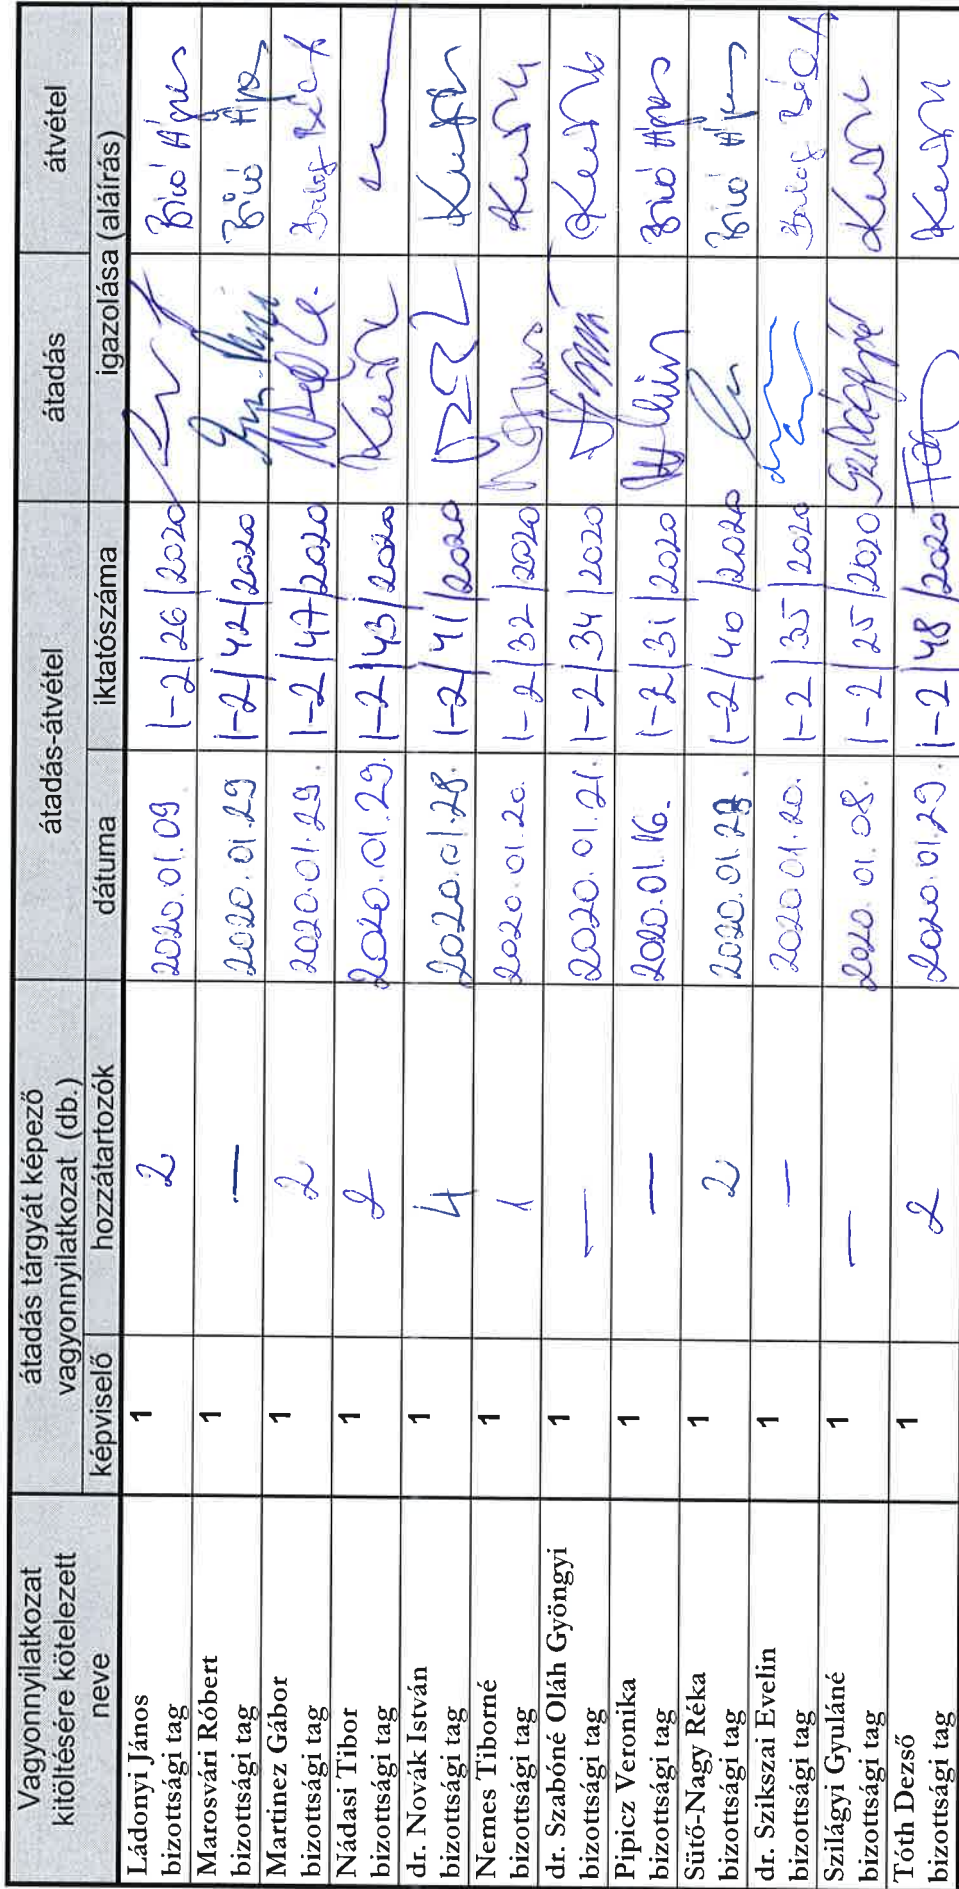 Vagyonnyilatkozat kitöltésére kötelezett neve
átadás tárgyát képező vagyonnyilatkozat (db.)
átadás-átvétel
átadás
átvétel
képviselő
hozzátartozók
dátuma
iktatószáma
igazolása (aláírás)
Ládonyi János bizottsági tag 1 2 2020.01.09 1-2/26/2020 Bíró Ágnes
Marosvári Róbert bizottsági tag 1 — 2020.01.29 1-2/42/2020 Bíró Ágnes
Martinez Gábor bizottsági tag 1 2 2020.01.29. 1-2/47/2020
Nádasi Tibor bizottsági tag 1 2 2020.01.29. 1-2/43/2020
dr. Novák István bizottsági tag 1 4 2020.01.28. 1-2/41/2020
Nemes Tiborné bizottsági tag 1 1 2020.01.20. 1-2/32/2020
dr. Szabóné Oláh Gyöngyi bizottsági tag 1 — 2020.01.21. 1-2/34/2020
Pipicz Veronika bizottsági tag 1 — 2020.01.16. 1-2/31/2020 Bíró Ágnes
Sütő-Nagy Réka bizottsági tag 1 2 1-2/40/2020 Bíró Ágnes
dr. Szikszai Evelin bizottsági tag 1 — 2020.01.20. 1-2/35/2020
Szilágyi Gyuláné bizottsági tag 1 — 2020.01.08. 1-2/25/2020
Tóth Dezső bizottsági tag 1 2 2020.01.29. 1-2/48/2020